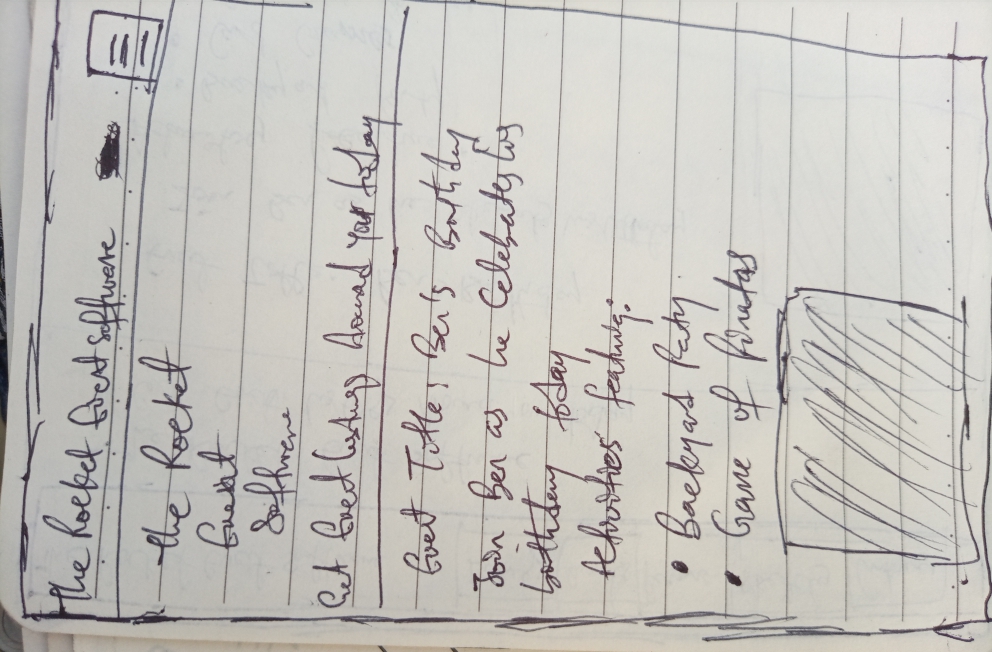 The Rocket Event Software
The Rocket
Event
Software
Get Event listing Around your today
Event Title: Ben's Birthday
Join Ben as he Celebrates his
birthday today
Activities featuring:
• Backyard Party
• Game of